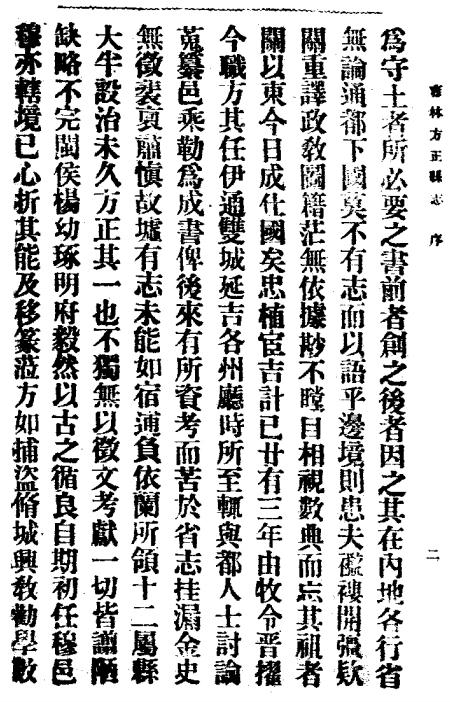 吉林方正縣志 序 二
為守土者所必要之書前者創之後者因之其在內地各行省
無論通都下國莫不有志而以語乎邊境則患夫襤褸開疆欵
關重譯政敎圖籍茫無依據尠不瞠目相視數典而忘其祖者
關以東今日成仕國矣忠植宦吉計已廿有三年由牧令晉擢
今職方其任伊通雙城延吉各州廳時所至輒與都人士討論
蒐纂邑乘勒為成書俾後來有所資考而苦於省志挂漏金史
無徵裘夏肅愼故墟有志未能如宿逋負依蘭所領十二屬縣
大半設治未久方正其一也不獨無以徵文考獻一切皆謭陋
缺略不完閩侯楊幼琢明府毅然以古之循良自期初任穆邑
穆亦轄境已心折其能及移篆蒞方如捕盜脩城興敎勸學數